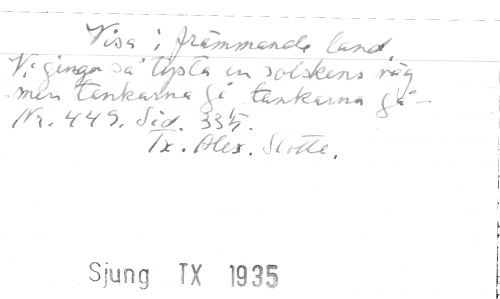 Visa i främmande land.
Vi gingo så tysta en solskens väg
men tankarna gå tankarna gå –
Nr. 449. Sid. 335.
Tx. Alex. Slotte.
Sjung TX 1935